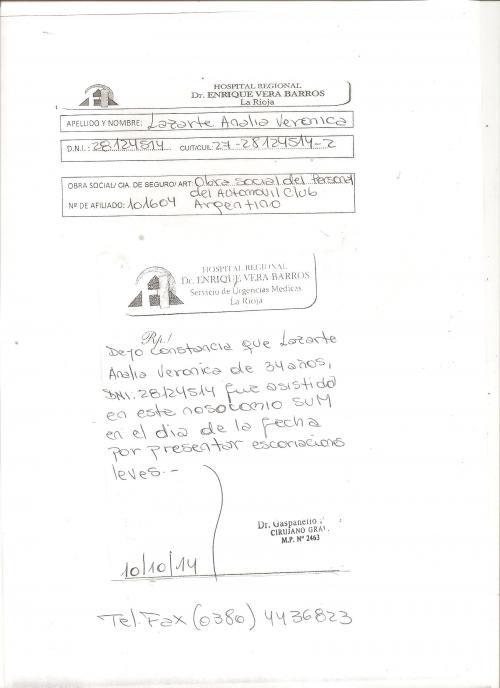 HOSPITAL REGIONAL
Dr. ENRIQUE VERA BARROS
La Rioja
APELLIDO Y NOMBRE: Lazarte Analia Veronica
D.N.I.: 28124514 CUIT/CUIL: 27-28124514-2
OBRA SOCIAL/ CIA. DE SEGURO/ ART: Obra social del Personal
del Automovil Club
Nº DE AFILIADO: 101604 Argentino
HOSPITAL REGIONAL
Dr. ENRIQUE VERA BARROS
Servicio de Urgencias Medicas
La Rioja
Rp./
Dejo constancia que Lazarte
Analia Veronica de 34 años,
DNI. 28124514 fue asistido
en este nosocomio SUM
en el dia de la fecha
por presentar escoriacions
leves.-
Dr. Gaspanello
CIRUJANO GRAL.
M.P. Nº 2463
10/10/14
Tel. Fax (0380) 4436823